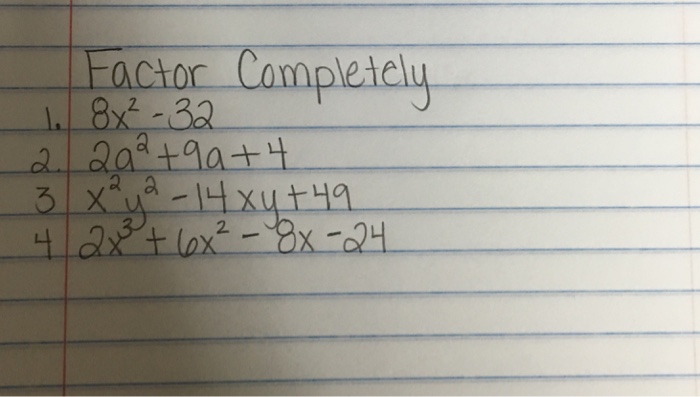 Factor Completely
1. 8x² - 32
2. 2a² + 9a + 4
3 x²y² - 14xy + 49
4 2x³ + 6x² - 8x - 24